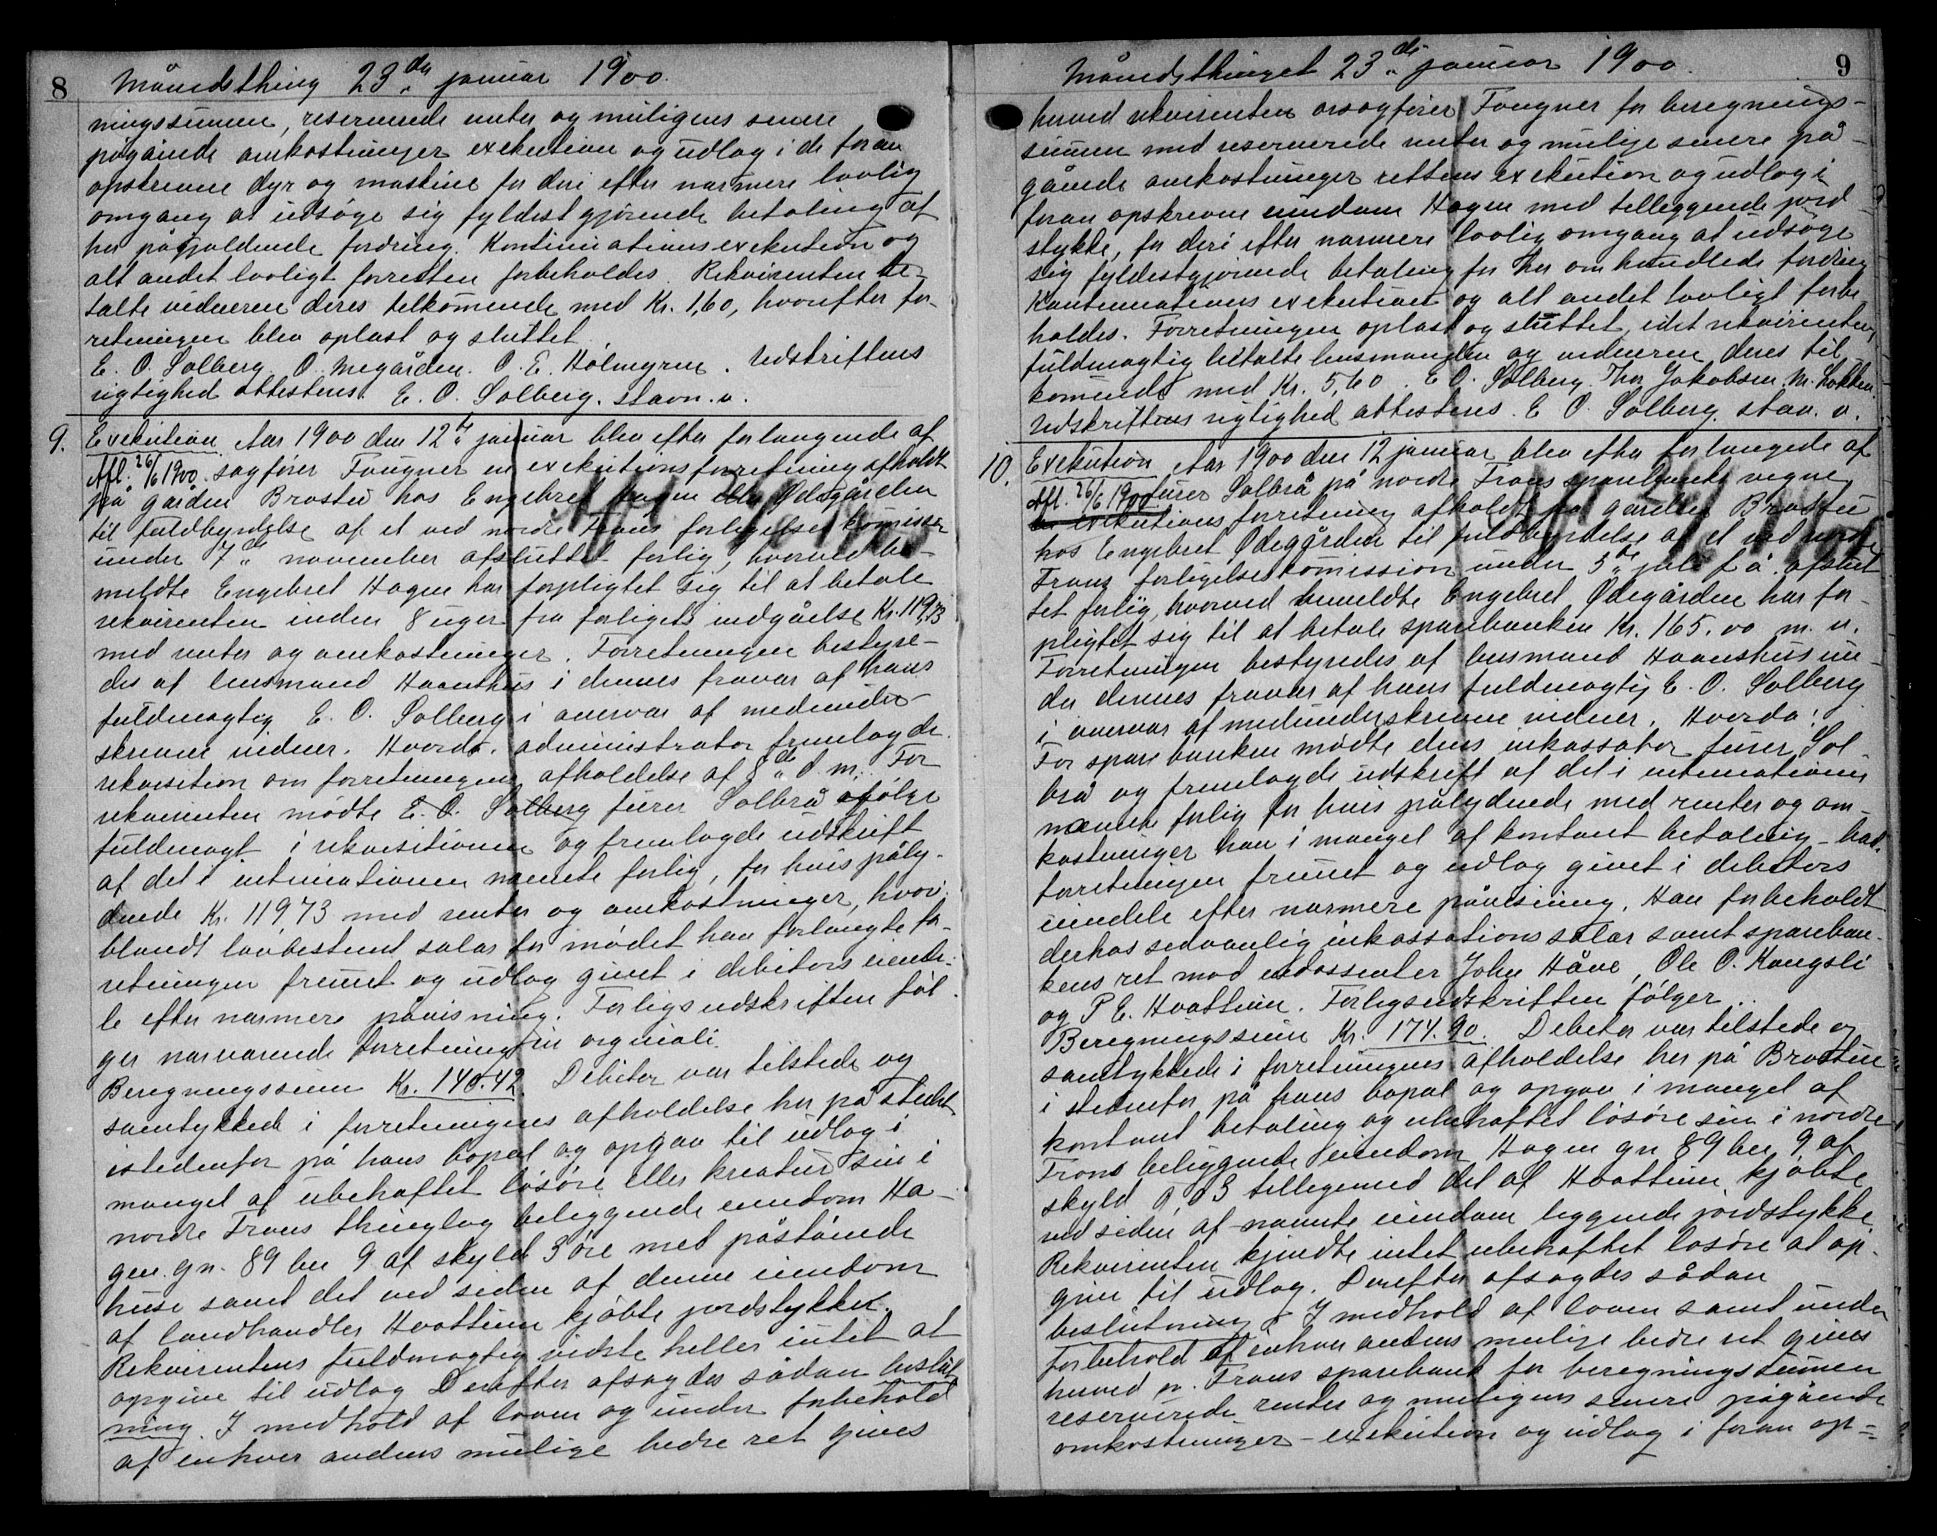 8 Månedsthing 23de januar 1900.
ningssummen, reserverede renter og muligens senere
pågående omkostninger exekution og udlæg i de foran
opskrevne dyr og maskine for deri efter nærmere lovlig
omgang at udsøge sig fyldestgjørende betaling af
her pågjældende fordring. Kontinuationsexekution og
alt andet lovligt forresten forbeholdes. Rekvirenten be-
talte vidnerne deres tilkommende med Kr. 1,60, hvorefter for-
retningen blev oplæst og sluttet.
E. O. Solberg. O. Megården. O. E. Holmgren. Udskriftens
rigtighed attesteres. E. O. Solberg. stævn. v.
9. Exekution. Aar 1900 den 12te januar blev efter forlangende af
Afl. 26/6 1900. sagfører Fougner en exekutionsforretning afholdt
på gården Brostu hos Engebret Hagen eller Ødegården
til fuldbyrdelse af et ved nordre Frons forligelseskomission
under 7de november afsluttet forlig, hvorved be-
meldte Engebret Hagen har forpligtet sig til at betale
rekvirenten inden 8 uger fra forligets indgåelse Kr. 119,73
med renter og omkostninger. Forretningen bestyre-
des af lensmand Haanshus i dennes fravær af hans
fuldmægtig E. O. Solberg i overvær af medunder-
skrevne vidner. Hvorda, administrator fremlagde
rekvisition om forretningens afholdelse af 8de d. m. For
rekvirenten mødte E. O. Solberg furer Solbrå ifølge
fuldmagt i rekvisitionen og fremlagde udskrift
af det i intimationen nævnte forlig, for hvis påly-
dende Kr. 119,73 med renter og omkostninger, hvori-
blandt lovbestemt salær for mødet han forlangte for-
retningen fremet og udlæg givet i debitors eiende-
le efter nærmere påvisning. Forligsudskriften føl-
ger nærværende forretning in originali.
Beregningssum Kr. 140.42 Debitor var tilstede og
samtykkede i forretningens afholdelse her på stedet
istedenfor på hans bopæl og opgav til udlæg i
mangel af ubehæftet løsøre eller kreatur sin i
nordre Frons thinglag beliggende eiendom Ha-
gen gn. 89 bn 9 af skyld 3 øre med påstående
huse samt det ved siden af denne eiendom
af landhandler Hvattum kjøbte jordstykke.
Rekvirentens fuldmægtig vidste heller intet at
opgive til udlæg Derefter afsagdes sådan beslut-
ning. I medhold af loven og under forbehold
af enhver andens mulige bedre ret gives
Månedsthinget 23de januar 1900. 9
herved rekvirenten orsagfører Fougner for beregnings-
summen med reserverede renter og mulige senere på-
gående omkostninger rettens exekution og udlæg i
foran opskrevne eiendom Hagen med tilleggende jord-
stykke, for deri efter nærmere lovlig omgang at udsøge
sig fyldestgjørende betaling for her omhandlede fordring.
Kontinuations exekution og alt andet lovligt forbe-
holdes. Forretningen oplæst og sluttet, idet rekvirentens
fuldmægtig betalte lensmanden og vidnerne deres til-
kommende med Kr. 5,60. E O. Solberg. Thor Jakobsen. M. Løkken.
Udskriftens rigtighed attesteres. E. O. Solberg. stæv. v.
10. Exekution Aar 1900 den 12 januar blev efter forlangede af
Afl. 26/6 1900 furer Solbrå på nordre Frons sparebanks vegne
en exekutions forretning afholdt på gården Brostu
hos Engebret Ødegården til fuldbyrdelse af et ved nordre
Frons forligelseskomission under 5te juli f. å. afslut-
tet forlig, hvorved bemeldte Engebret Ødegården har for-
pligtet sig til at betale sparebanken Kr. 165.00 m. v.
Forretningen bestyredes af lensmand Haanshus un-
der dennes fravær af hans fuldmægtig E. O. Solberg
i overvær af medunderskrevne vidner. Hvorda:
For sparebanken mødte dens inkassator furer Sol-
brå og fremlagde udskrift af det i intimationen
nævnte forlig for hvis pålydende med renter og om-
kostninger han i mangel af kontant betaling – bad
forretningen fremet og udlæg givet i debitors
eiendele efter nærmere påvisning. Han forbeholdt
derhos sedvanlig inkassations salær samt spareban-
kens ret mod endossenter John Håve, Ole O. Kongsli
og P. E. Hvattum. Forligsudskriften følger..
Beregningssum Kr. 174.90. Debitor var tilstede og
samtykkede i forretningens afholdelse her på Brostu
i stedenfor på hans bopæl og opgav i mangel af
kontant betaling og ubehæftet løsøre sin i nordre
Frons beliggende eiendom Hagen gn 89 bn 9 af
skyld 0,03 tilligemed det af Hvattum kjøbte
ved siden af nævnte eiendom liggende jordstykke.
Rekvirenten kjendte intet ubehæftet løsøre at op-
give til udlæg. Derefter afsagdes sådan
beslutning: I medhold af loven samt under
forbehold af enhver andens mulige bedre ret gives
herved n. Frons sparebank for beregningssummen
reserverede renter og muligens senere pågående
omkostninger – exekution og udlæg i foran op-